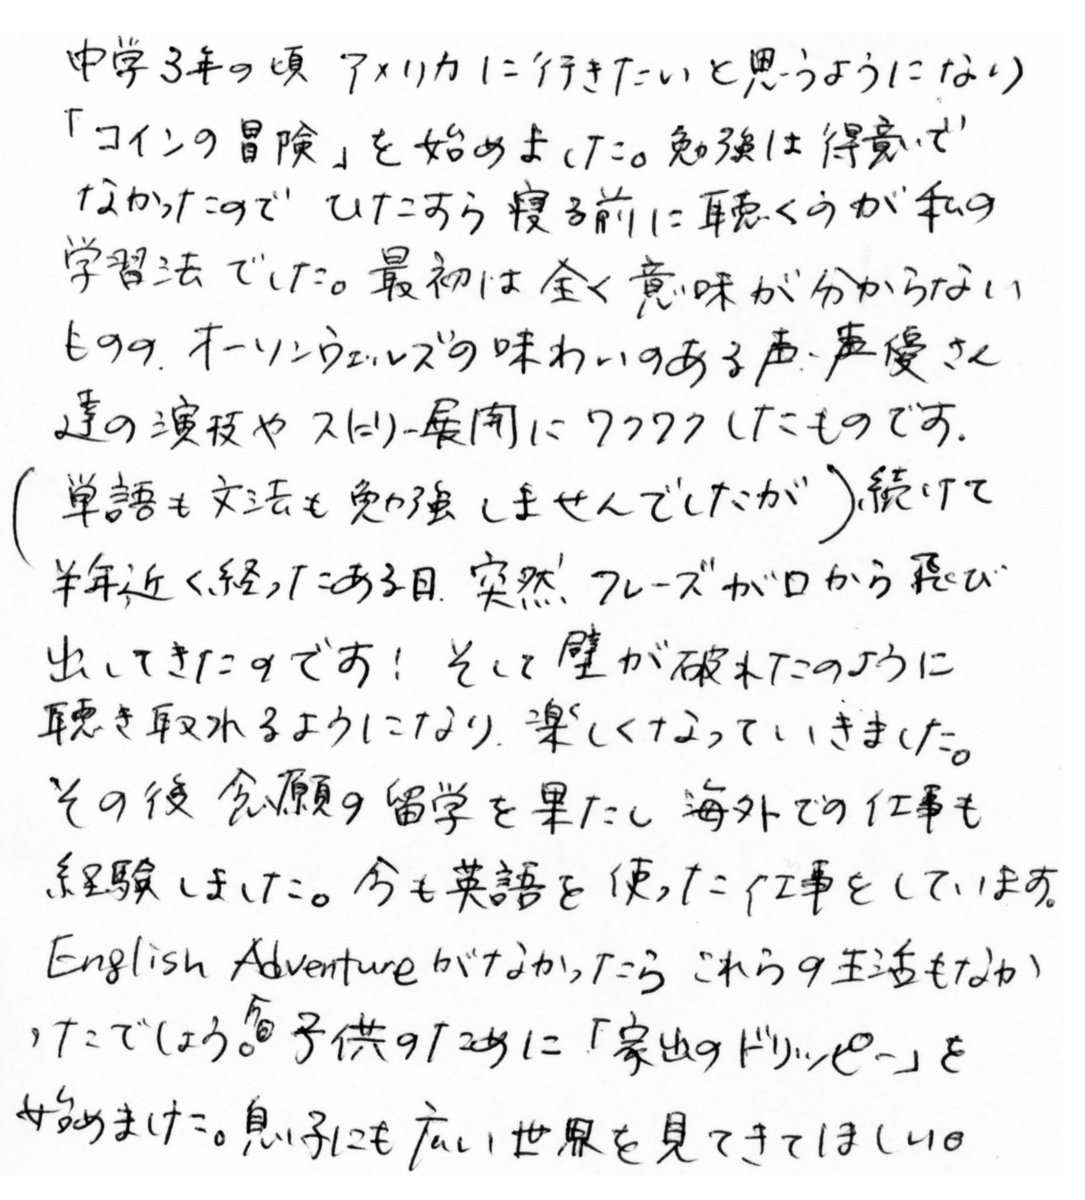 中学3年の頃 アメリカに行きたいと思うようになり
「コインの冒険」を始めました。勉強は得意で
なかったので ひたすら寝る前に聴くのが私の
学習法でした。最初は全く意味が分からない
ものの、オーソンウェルズの味わいのある声、声優さん
達の演技やストーリー展開にワクワクしたものです。
(単語も文法も勉強しませんでしたが)続けて
半年近く経ったある日、突然、フレーズが口から飛び
出してきたのです！そして壁が破れたのように
聴き取れるようになり、楽しくなっていきました。
その後 念願の留学を果たし 海外での仕事も
経験しました。今も英語を使った仕事をしています。
English Adventureがなかったら これらの生活もなか
ったでしょう。今回 子供のために「家出のドリッピー」を
始めました。息子にも広い世界を見てきてほしい。